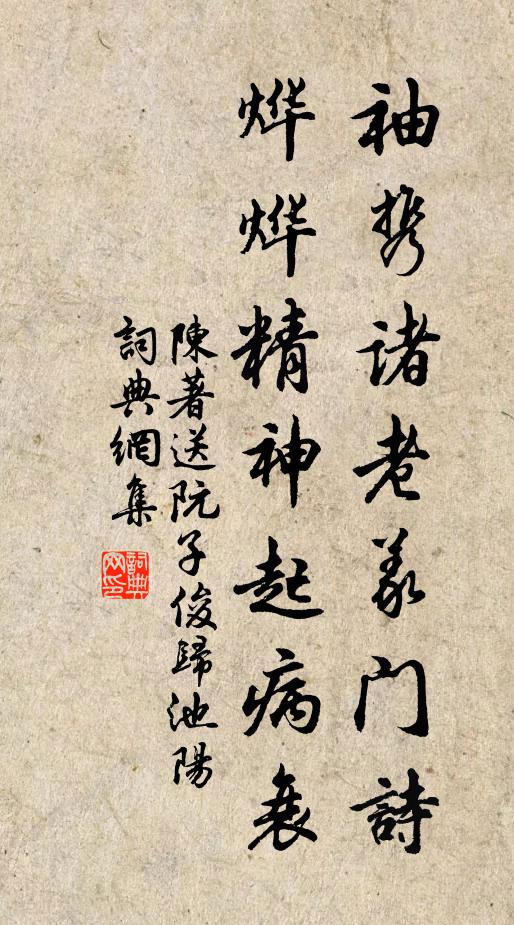 袖携诸老义门詩
烨烨精神起病衰
陳著送阮子俊歸池陽
詞典網集
詞典网印